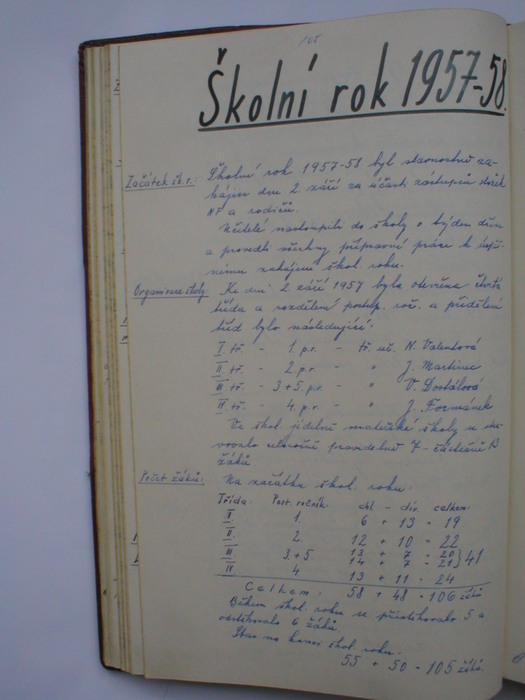 165
Školní rok 1957-58.
Začátek šk. r.: Školní rok 1957-58 byl slavnostně za-
hájen dne 2. září za účasti zástupců složek
NF a rodičů.
Učitelé nastoupili do školy o týden dříve
a provedli všechny přípravné práce k
nímu zahájení škol. roku.
Organisace školy: Ke dni 2. září 1957 byla otevřena čtvrtá
třída a rozdělení postup. roč. a přidělení
tříd bylo následující:
I tř. - 1. p.r. - tř. uč. N. Valentová
II tř. - 2. p.r. - " J. Martinec
III tř. - 3+5 p.r. - " V. Dostálová
IV tř. - 4. p.r. - " J. Formánek
Ve škol. jídelně mateřské školy se stra-
vovalo celoročně pravidelně 7 - částečně 13
žáků
Počet žáků: Na začátku škol. roku:
Třída: Post. ročník: chl - div. celkem:
I 1. 6 + 13 - 19
II 2. 12 + 10 - 22
III 3.+5 13 + 7 - 20 } 41
14 + 7 - 21
IV 4 13 + 11 - 24
Celkem: 58 + 48 - 106 žáků
Během škol. roku se přistěhovalo 5 a
odstěhovalo 6 žáků.
Stav na konci škol. roku:
55 + 50 - 105 žáků.